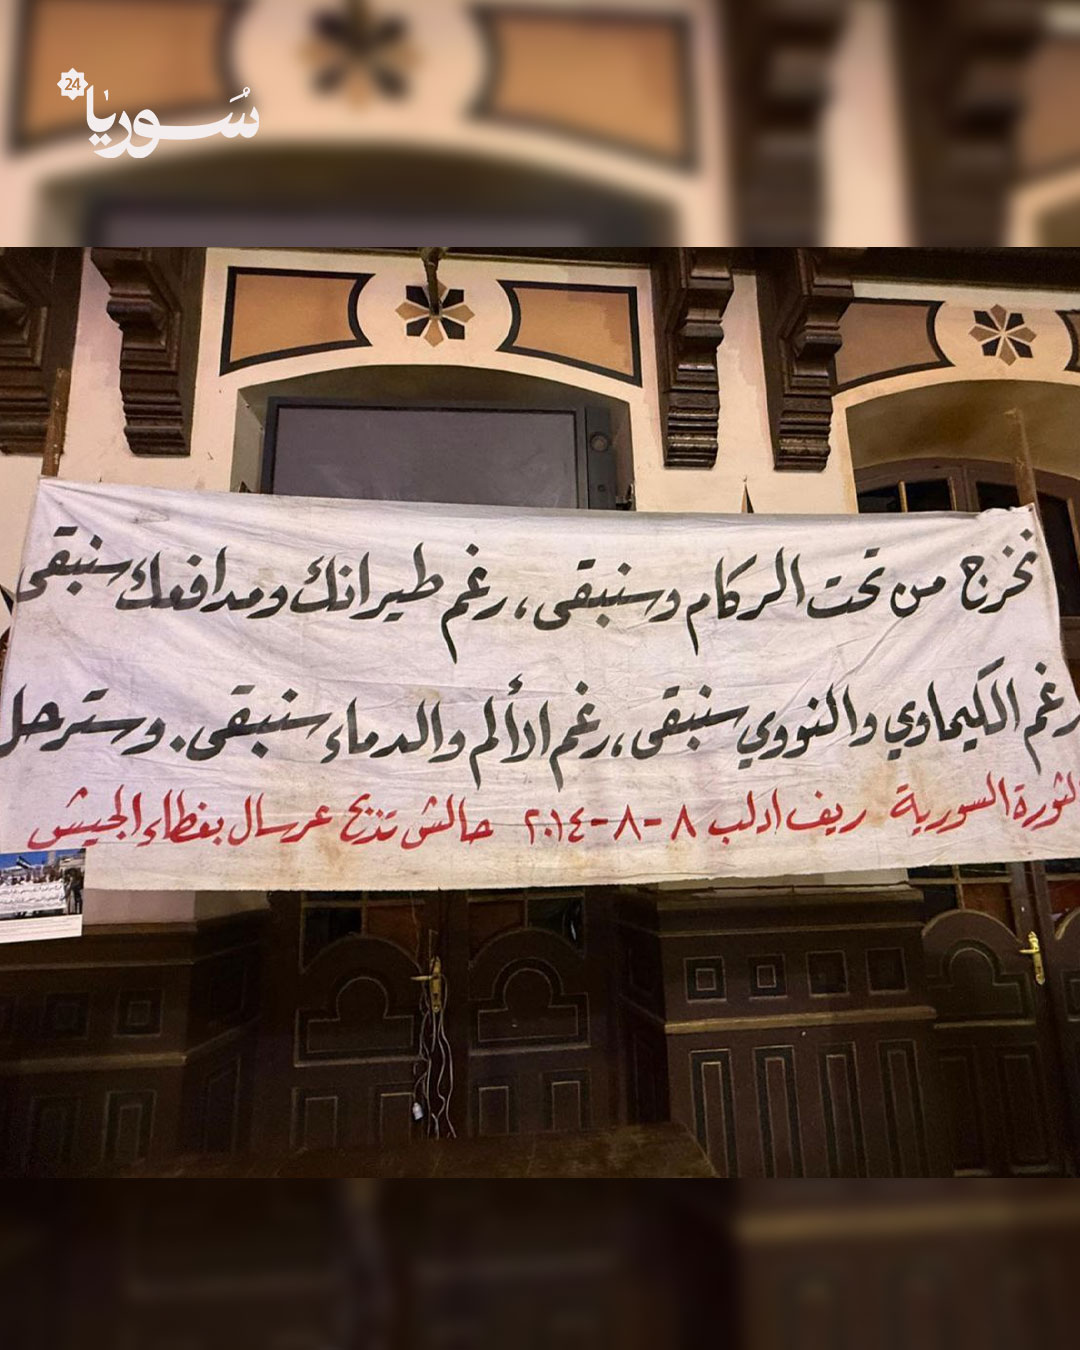 سوريا 24
نخرج من تحت الركام وسنبقى، رغم طيرانك ومدافعك سنبقى
رغم الكيماوي والنووي سنبقى، رغم الألم والدماء سنبقى. وسترحل
الثورة السورية ريف ادلب ٨-٨-٢٠١٤ حالش تذبح عرسال بغطاء الجيش